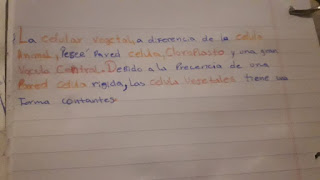 La celular vegetal, a diferencia de la celula
Animal, Pesee Pared celula, Cloroplasto y una gran
Vacula Central. Debido a la Precencia de una
Pared celula rigida, Las celula vegetales tiene su
forma contantes